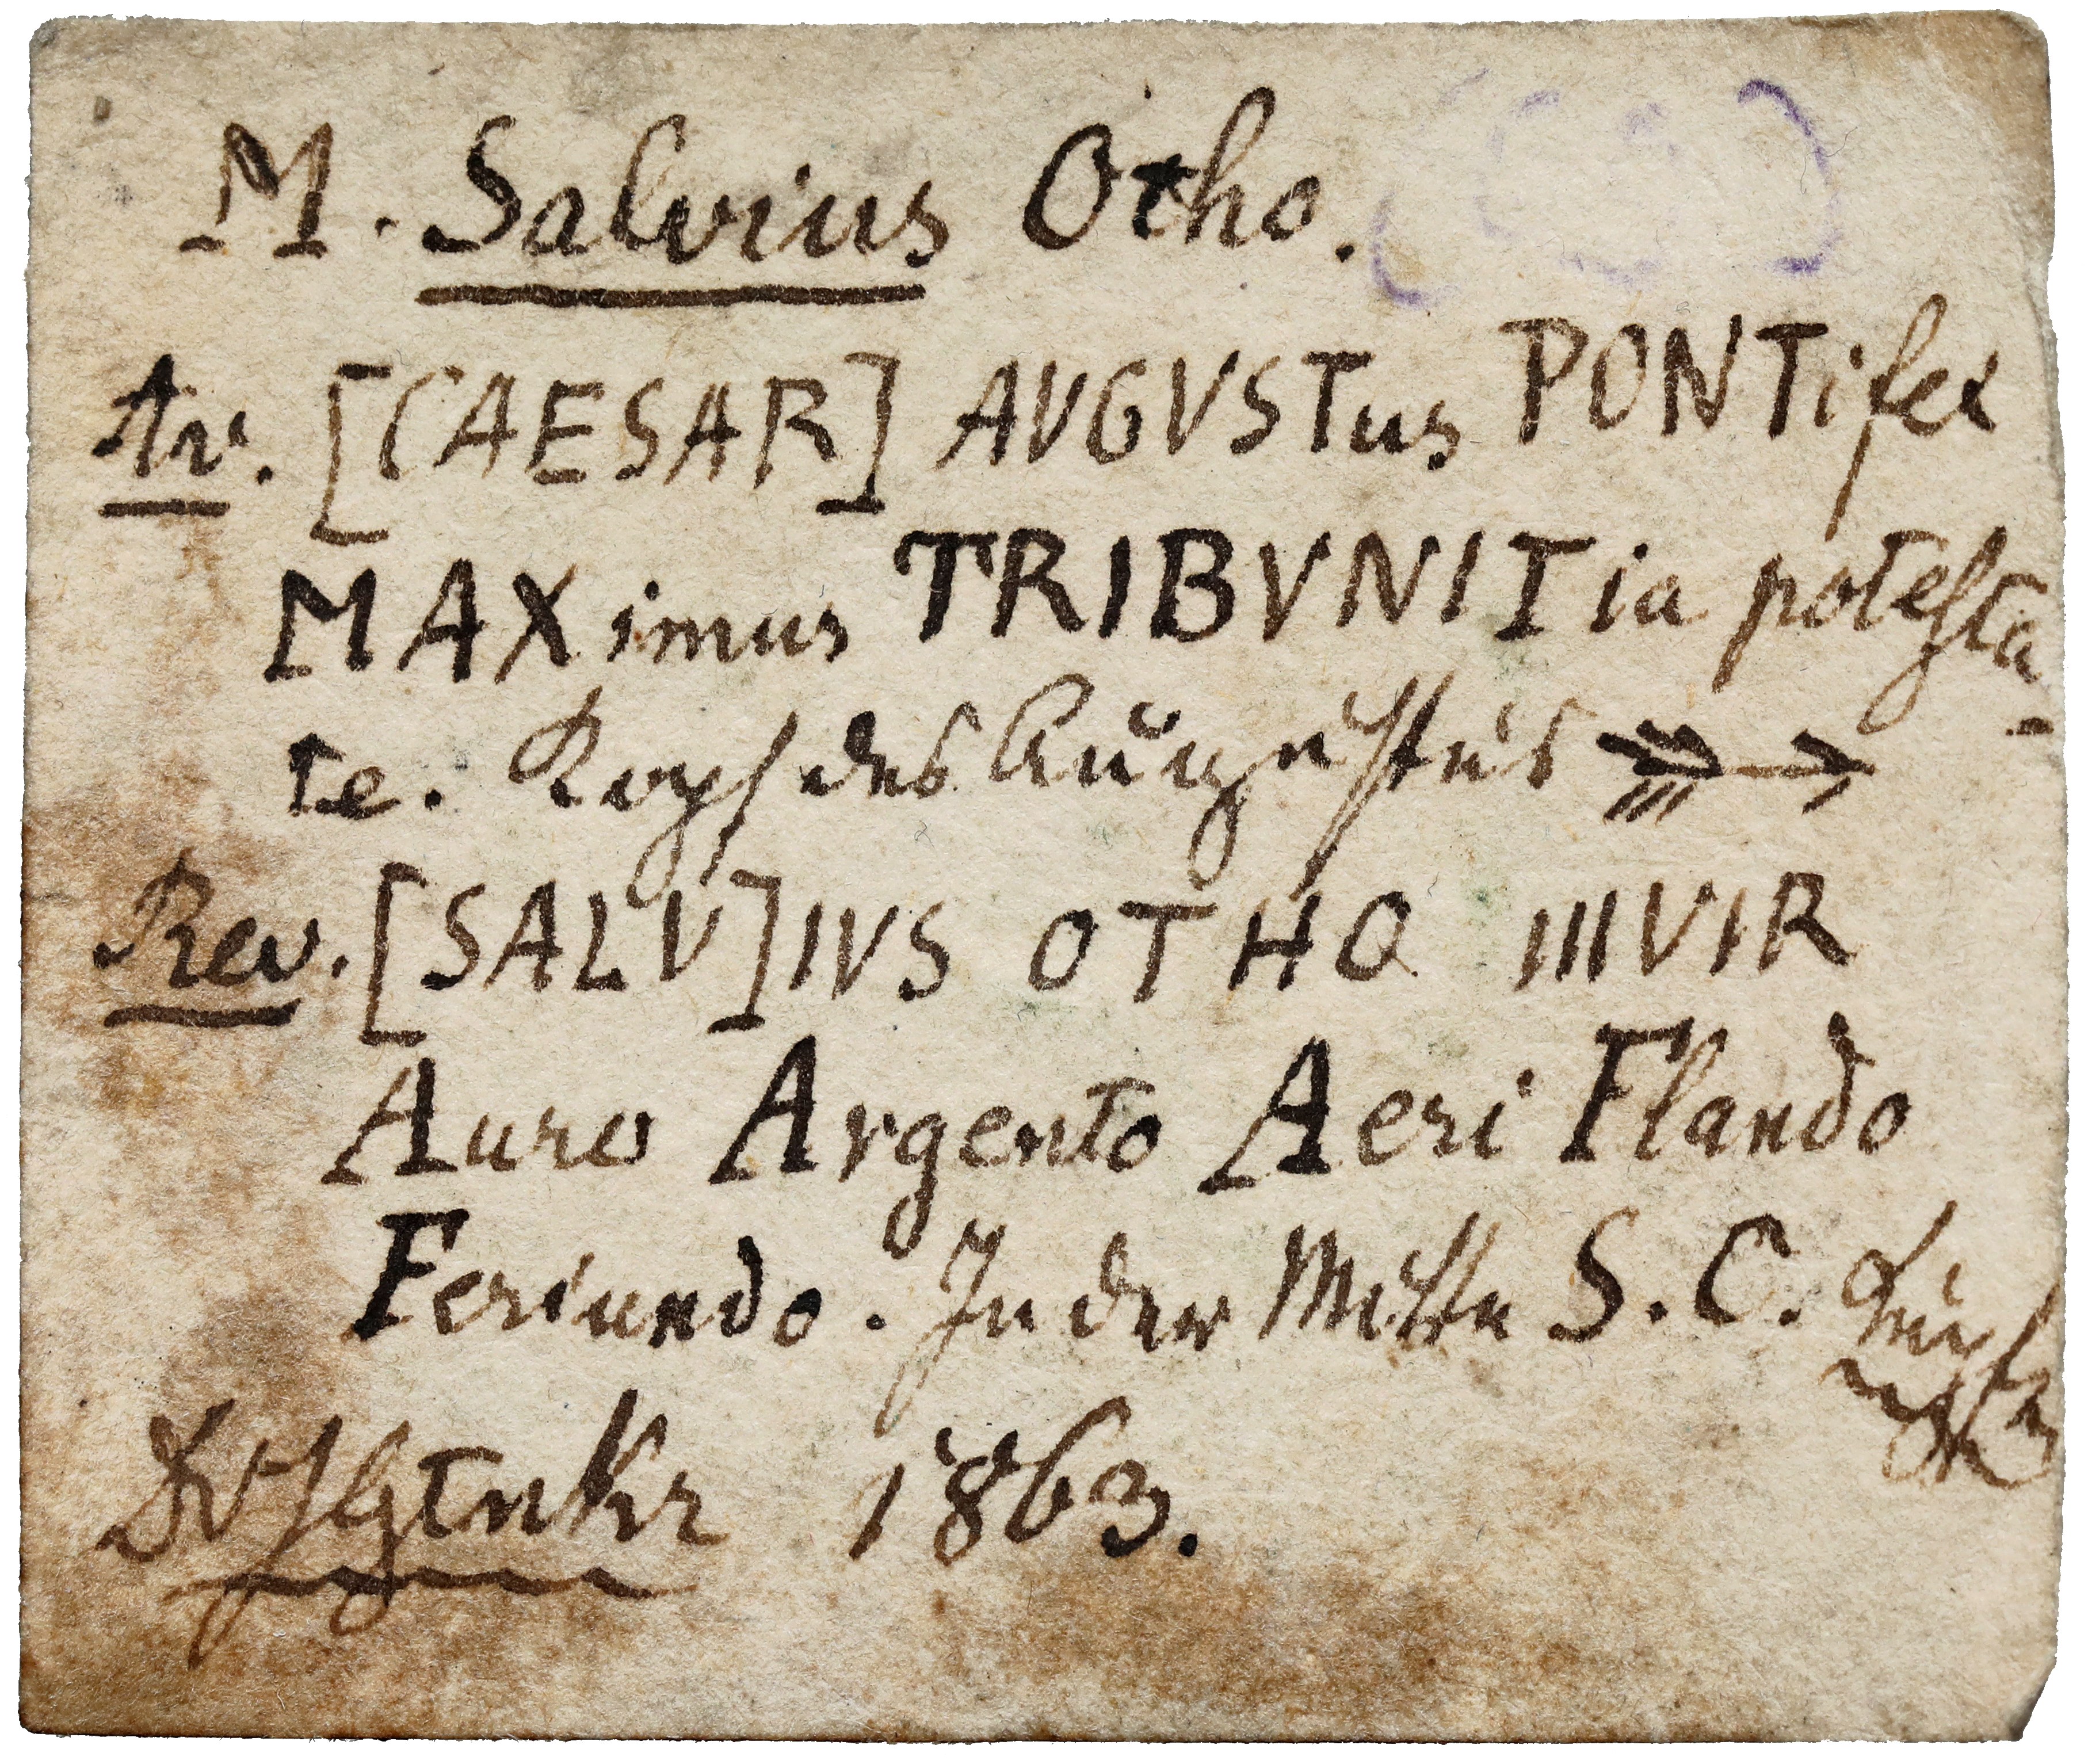 M. Salvius Otho.
Av. [CAESAR] AVGVSTus PONTifex
MAXimus TRIBVNITia potesta-
te. Kopf des Augustus
Rev. [SALV]IVS OTHO IIIVIR
Auro Argento Aeri Flando
Feriundo. In der Mitte S. C.
1863.